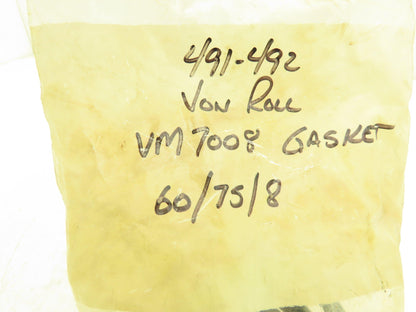 4/91-4/92
VON ROLL
VM7008 GASKET
60/75/8